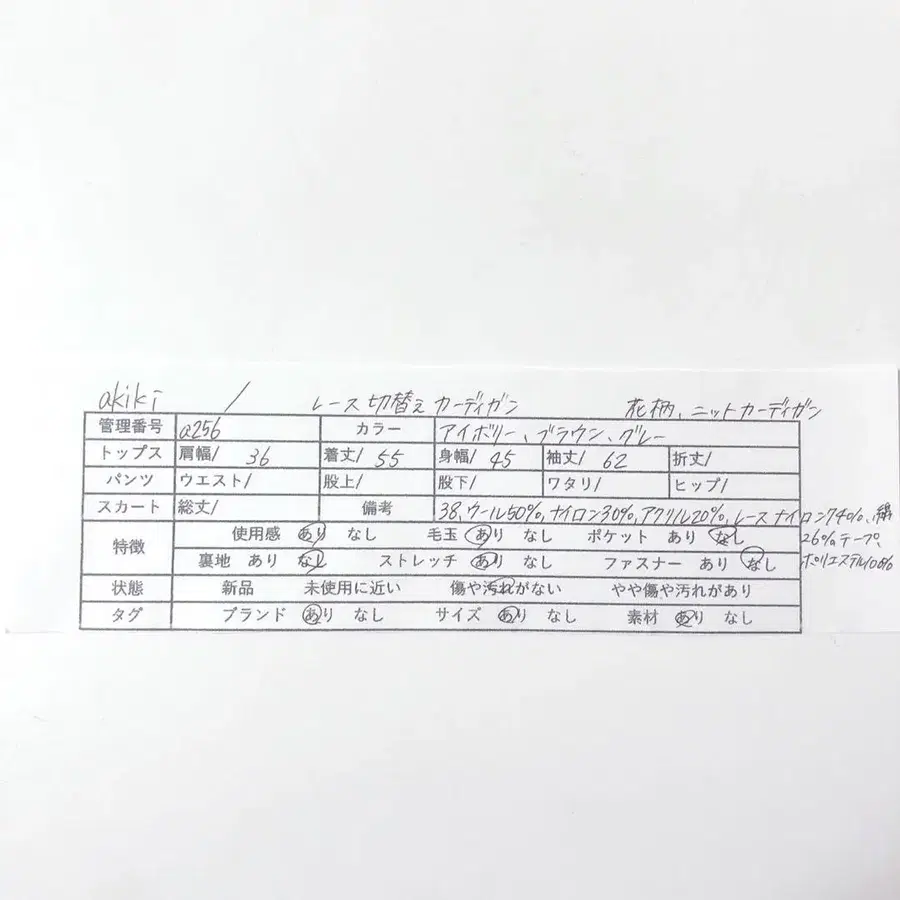 akiki / レース切替え カーディガン 花柄、ニットカーディガン
管理番号 a256 カラー アイボリー、ブラウン、グレー
トップス 肩幅/ 36 着丈/ 55 身幅/ 45 袖丈/ 62 裄丈/
パンツ ウエスト/ 股上/ 股下/ ワタリ/ ヒップ/
スカート 総丈/ 備考 38、ウール50%、ナイロン30%、アクリル20%、レースナイロン74%、綿
26%テープ、
ポリエステル100%
特徴 使用感 あり なし 毛玉 あり なし ポケット あり なし
裏地 あり なし ストレッチ あり なし ファスナー あり なし
状態 新品 未使用に近い 傷や汚れがない やや傷や汚れがあり
タグ ブランド あり なし サイズ あり なし 素材 あり なし